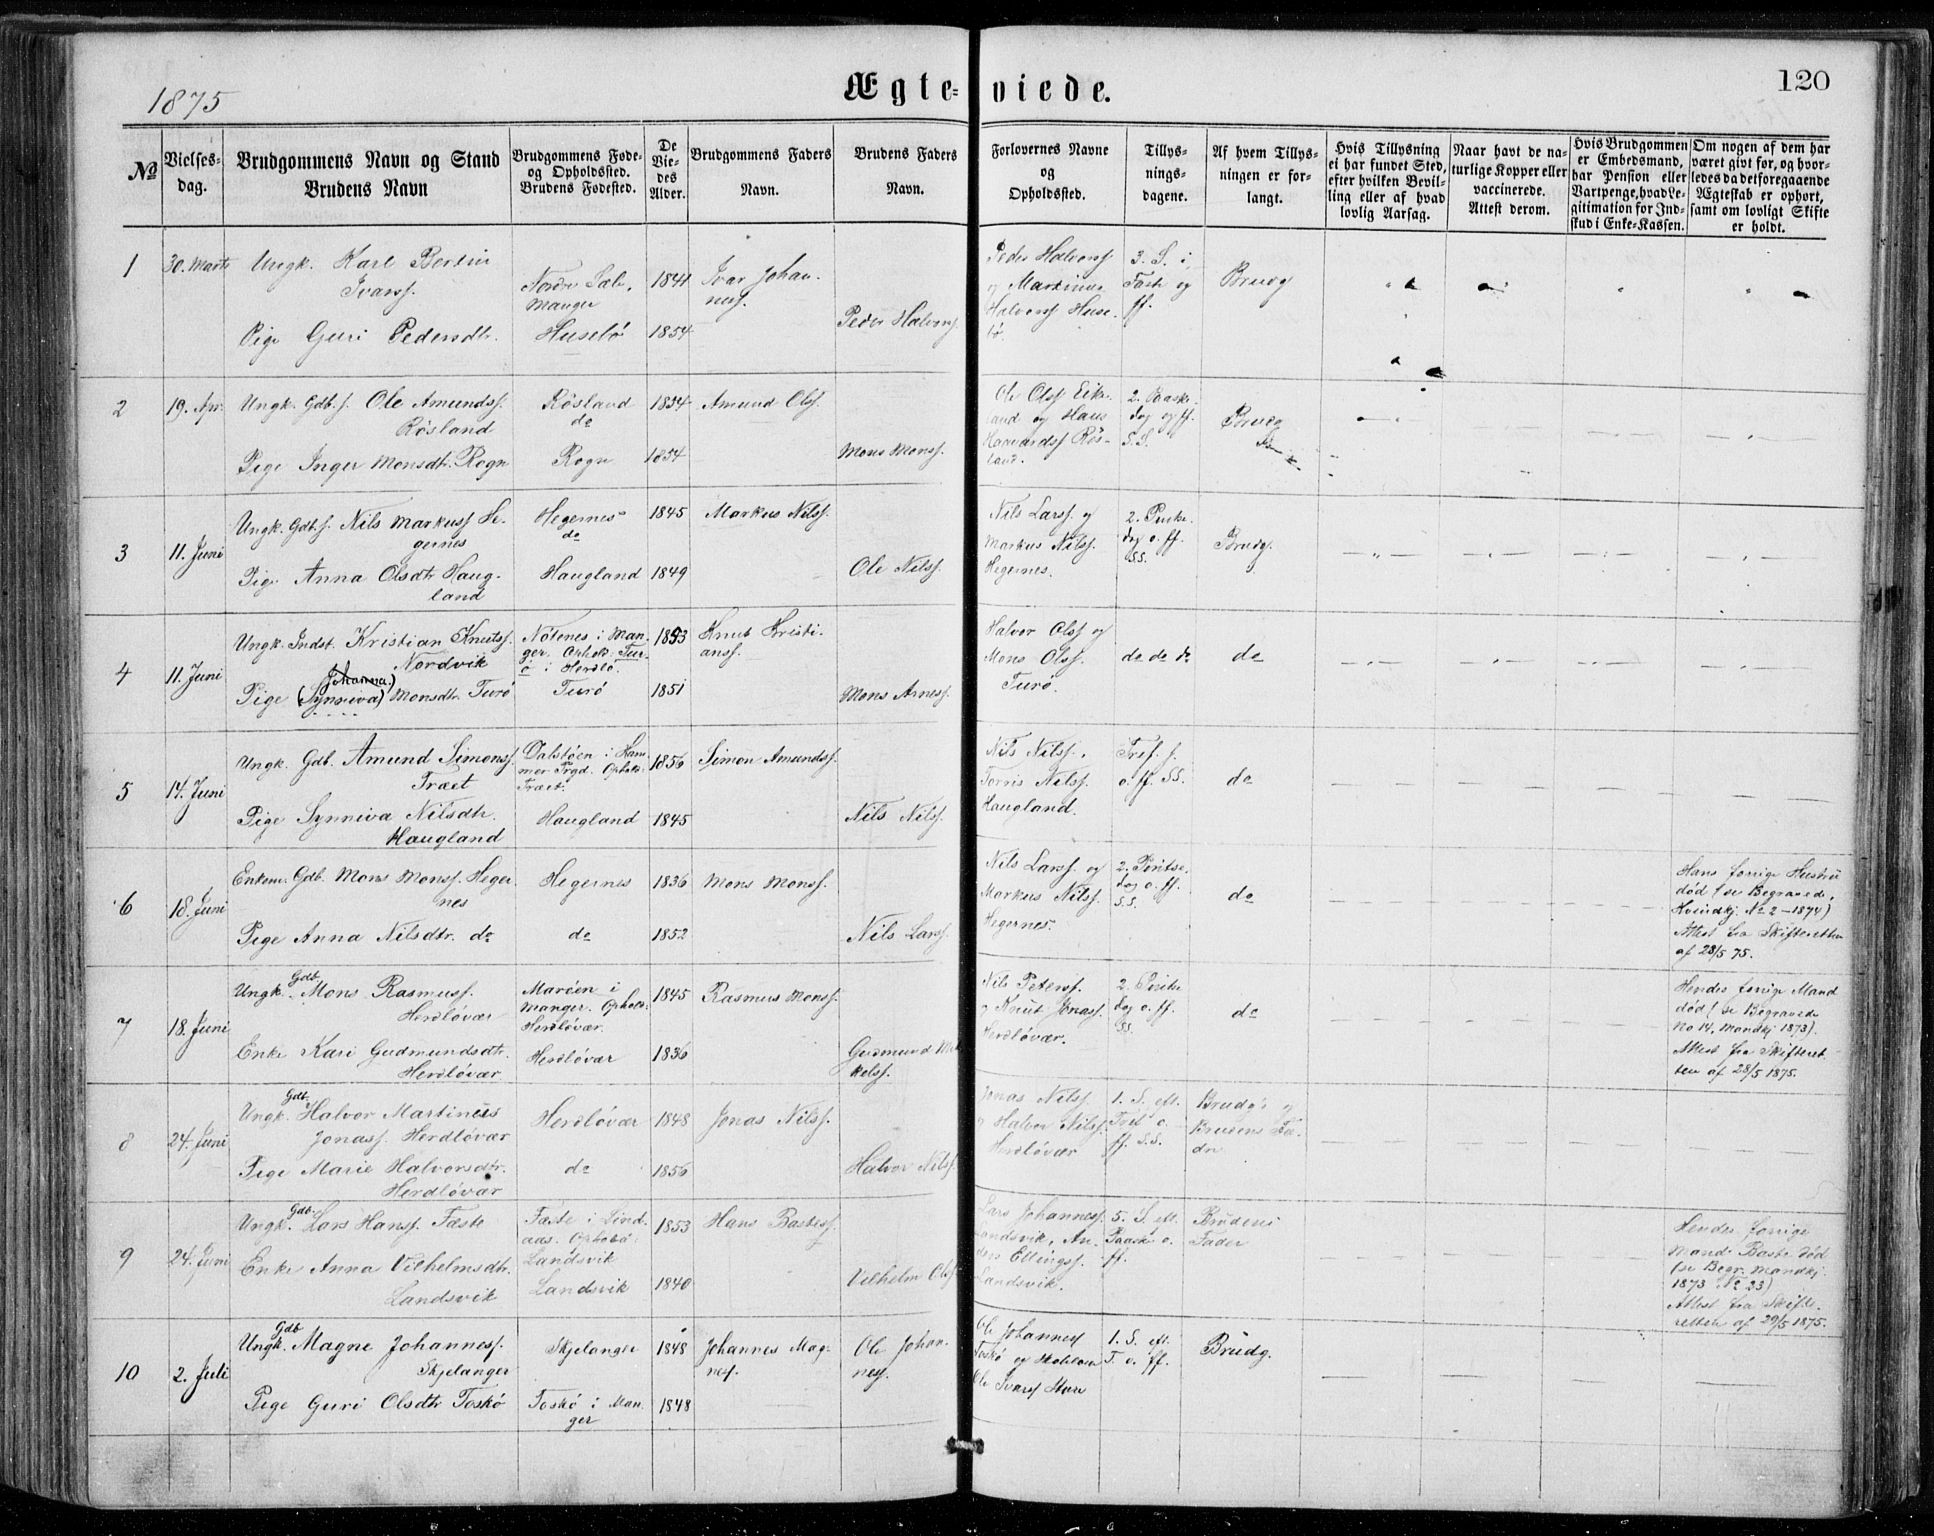 1875
Ægte-viede.
120
№
Vielses-
dag.
Brudgommens Navn og Stand
Brudens Navn
Brudgommens Føde-
og Opholdssted.
Brudens Fødested.
De
Vie-
des
Alder.
Brudgommens Faders
Navn.
Brudens Faders
Navn.
Forlovernes Navne
og
Opholdssted.
Tillys-
nings-
dagene.
Af hvem Tillys-
ningen er for-
langt.
Hvis Tillysning
ei har fundet Sted,
efter hvilken Bevil-
ling eller af hvad
lovlig Aarsag.
Naar havt de na-
turlige Kopper eller
vaccinerede.
Attest derom.
Hvis Brudgommen
er Embedsmand,
har Pension eller
Vartpenge, hvad Le-
gitimation for Ind-
skud i Enke-Kassen.
Om nogen af dem har
været givt før, og hvor-
ledes da det foregaaende
Ægteskab er ophørt,
samt om lovligt Skifte
er holdt.
1
30. Marts
Ungk. Karl Bertin
Ivarss.
Pige Guri Pedersdtr.
Nordre Sæle,
Manger
Husebö
1841
1854
Ivar Johan-
ness.
Peder Halvors.
Peder Halvorss
og Martinus
Halvorss Huse-
bö.
3. S. i
Faste og
ff.
Brudg
2
19. Apr.
Ungk. Gdb.s. Ole Amundss.
Rösland
Pige Inger Monsdtr. Rogn
Rösland
do
Rogn
1834
1854
Amund Olss
Mons Monss.
Ole Olss Eike-
land og Hans
Haavardss Rös-
land.
2. Paaske-
dag og ff.
S.S.
Brudg
3
11. Juni
Ungk. Gdb.s. Nils Markuss He-
gernes
Pige Anna Olsdtr Haug-
land
Hegernes
do
Haugland
1845
1849
Markus Nilss.
Ole Nilss.
Nils Larss. og
Markus Nilss.
Hegernes.
2. Pinse-
dag o. ff.
SS.
Brudg.
4
11. Juni
Ungk. Indst. Kristian Knutss.
Nordvik
Johanna)
Pige (Synniva) Monsdtr. Turö
Nötenes i Man-
ger. Opholds: Tur-
ö i Herdlö.
Turö
1853
1851
Knut Kristi-
anss.
Mons Arness.
Halvor Olss og
Mons Olss.
Turö.
do do do
do
5
14. Juni
Ungk. Gdb. Amund Simonss.
Træet
Pige Synniva Nilsdtr.
Haugland
Dalstöen i Ham-
mer Prgd. Opholds:
Træet.
Haugland
1856
1845
Simon Amundss.
Nils Nilss.
Nils Nilss.
Torris Nilss.
Haugland.
Tref. s.
o. ff. SS.
do
6
18. Juni
Enkem. Gdb. Mons Monss. Heger-
nes
Pige Anna Nilsdtr. do
Hegernes
do
1836
1852
Mons Monss.
Nils Larss.
Nils Larss. og
Markus Nilss.
Hegernes.
2. Pintse-
dag o. ff.
S.S.
do
Hans forrige Hustru
död (se Begravede,
Kvindkj. No 2 – 1874)
Attest fra Skifteretten
af 28/5 75.
7
18. Juni
Gdb
Ungk. Mons Rasmuss.
Herdlövær
Enke Kari Gudmundsdtr.
Herdlövær
Maröen i
Manger. Opholds:
Herdlövær.
Herdlövær
1845
1836
Rasmus Monss.
Gudmund Mik-
kelss.
Nils Peterss.
og Knut Jonass.
Herdlövær.
2. Pinse
dag o. ff.
SS.
do
Hendes forrige Mand
död (se Begravede
No 14, Mandkj 1873).
Attest fra Skifteret-
ten af 28/5 1875.
8
24. Juni
Gdb.
Ungk. Halvor Martinus
Jonass. Herdlövær
Pige Marie Halvorsdtr.
Herdlövær
Herdlövær
do
1848
1856
Jonas Nilss.
Halvor Nilss
Jonas Nilss.
og Halvor Nilss.
Herdlövær
1. S. eft.
Tref o.
ff. S.S.
Brudg's og
Brudens Fæ-
dre
9
24. Juni
Gdb.
Ungk. Lars Hanss. Fæste
Enke Anna Vilhelmsdtr.
Landsvik
Fæste i Lind-
aas. Opholds:
Landsvik
Landsvik
1853
1840
Hans Bastess.
Vilhelm Olss
Lars Johanness.
Landsvik, An-
ders Ellingss.
Landsvik.
5. S. eft.
Paaske o.
ff.
Brudens
Fader
Hendes forrige
Mand Baste död
(se Begr. Mandkj.
1873 No 23)
Attest fra Skifte-
retten af 29/5 1875.
10
2. Juli
Gdb
Ungk. Magne Johanness.
Skjelanger
Pige Guri Olsdtr Toskö
Skjelanger
Toskö i Man-
ger
1848
1848
Johannes Mag-
ness.
Ole Johan-
ness.
Ole Johanness
Toskö og
Ole Ivarss
1. S. eft.
T. o. ff.
Brudg.